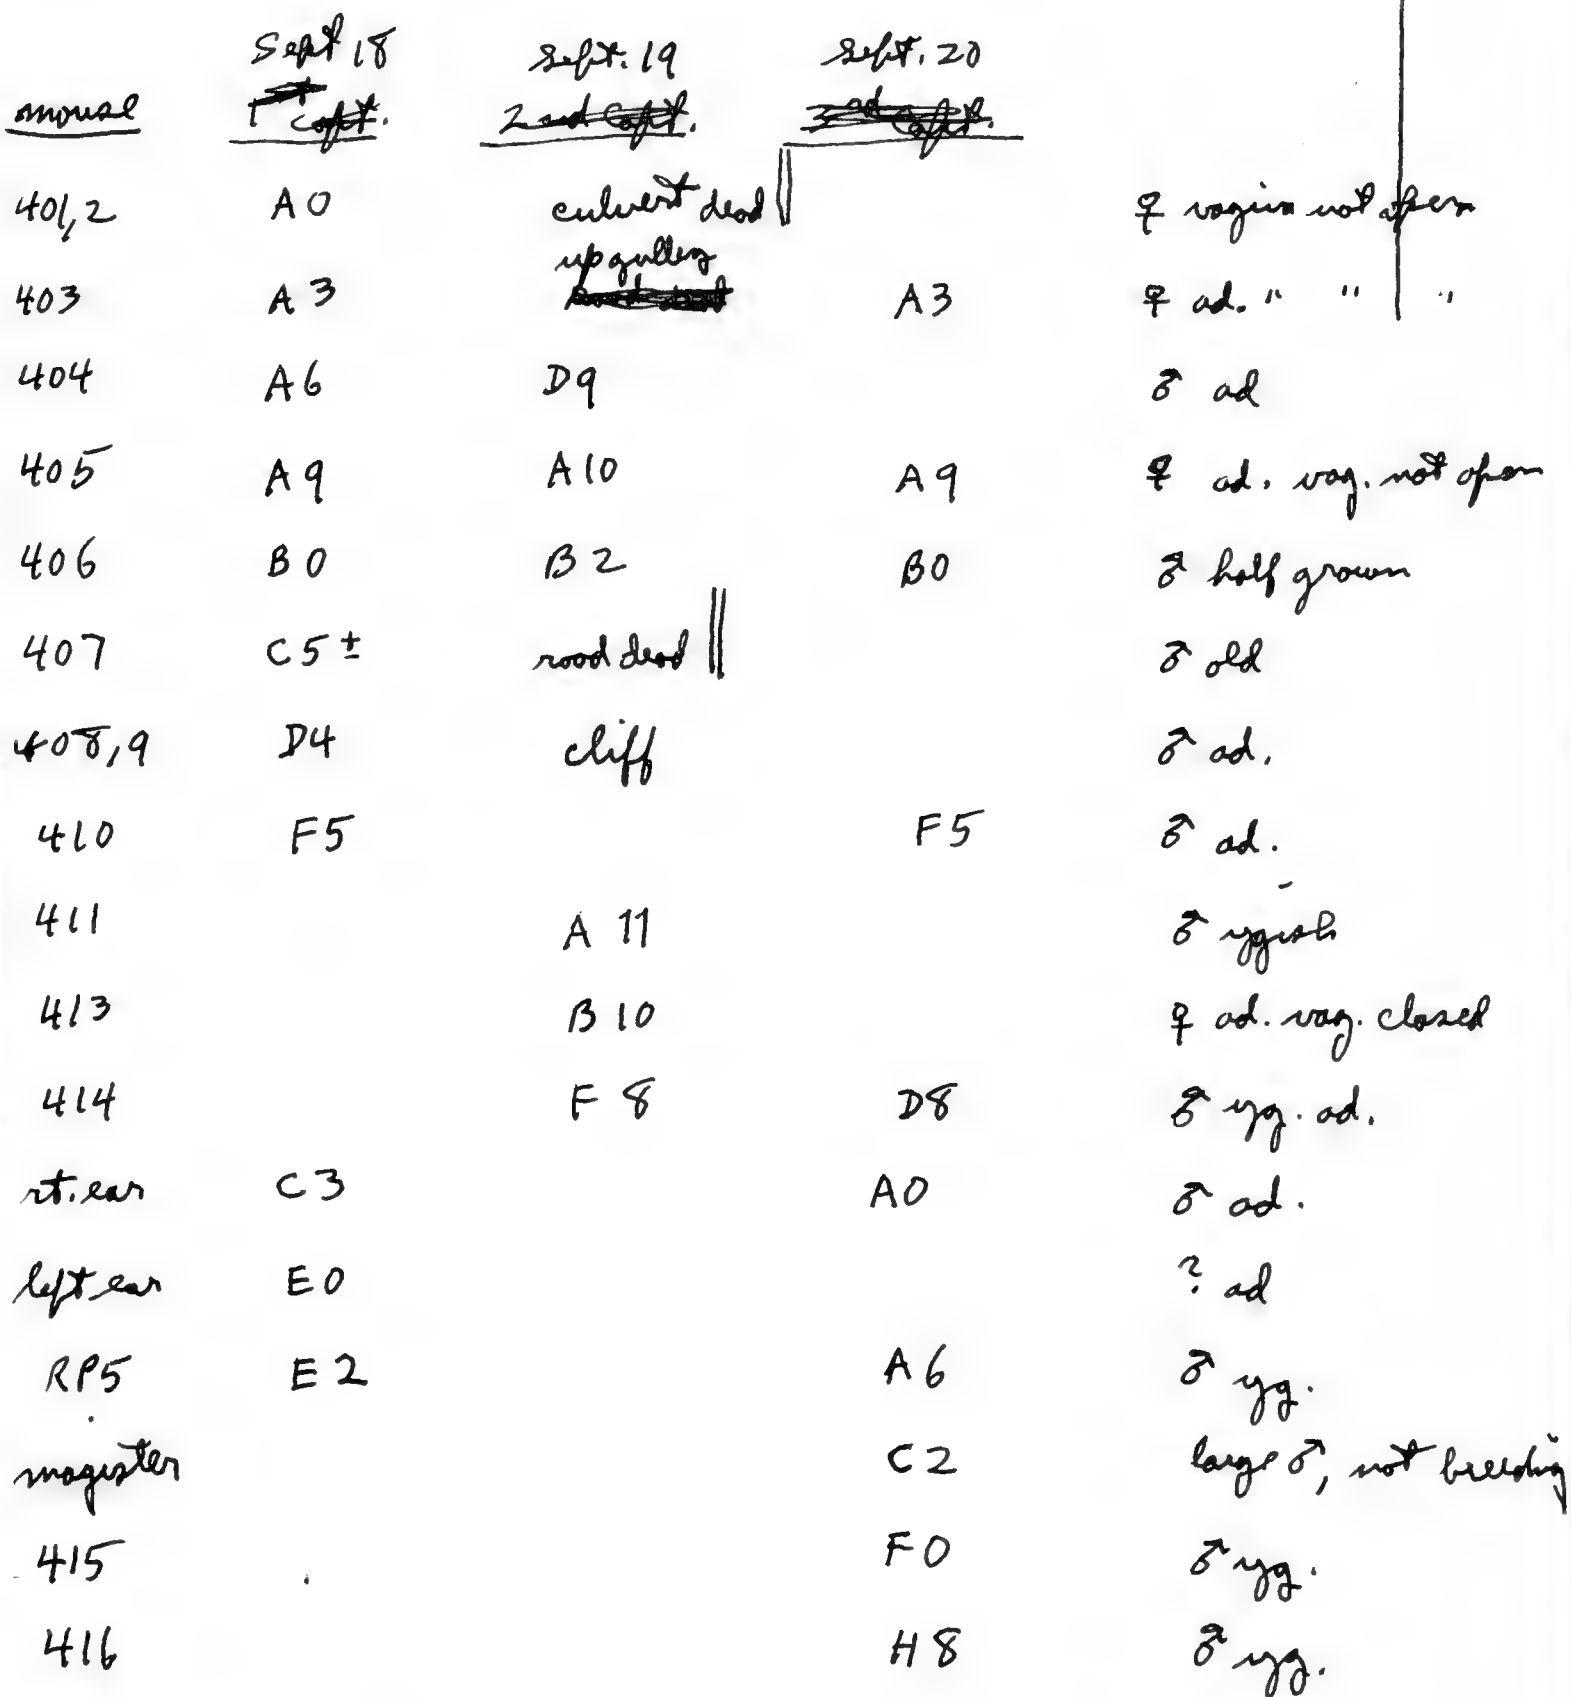 Sept 18 Sept. 19 Sept. 20
mouse 1st Capt. 2nd Capt. 3rd Capt.
401,2 A0 culvert dead ♀ vagina not open
up gulley
403 A3 A3 ♀ ad. " " "
404 A6 D9 ♂ ad
405 A9 A10 A9 ♀ ad. vag. not open
406 B0 B2 B0 ♂ half grown
407 C5± road dead ♂ old
408,9 D4 cliff ♂ ad.
410 F5 F5 ♂ ad.
411 A 11 ♂ ygish
413 B 10 ♀ ad. vag. closed
414 F 8 D8 ♂ yg. ad.
rt. ear C3 A0 ♂ ad.
left ear E0 ? ad
RP5 E2 A6 ♂ yg.
magister C2 large ♂, not breeding
415 F0 ♂ yg.
416 H8 ♂ yg.